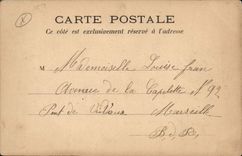 CARTE POSTALE
Ce côté est exclusivement réservé à l'adresse
M Mademoiselle Louise Jran
Avenue de la Capelette Nº 92
Pont de Vivaux Marseille
B. d. R.